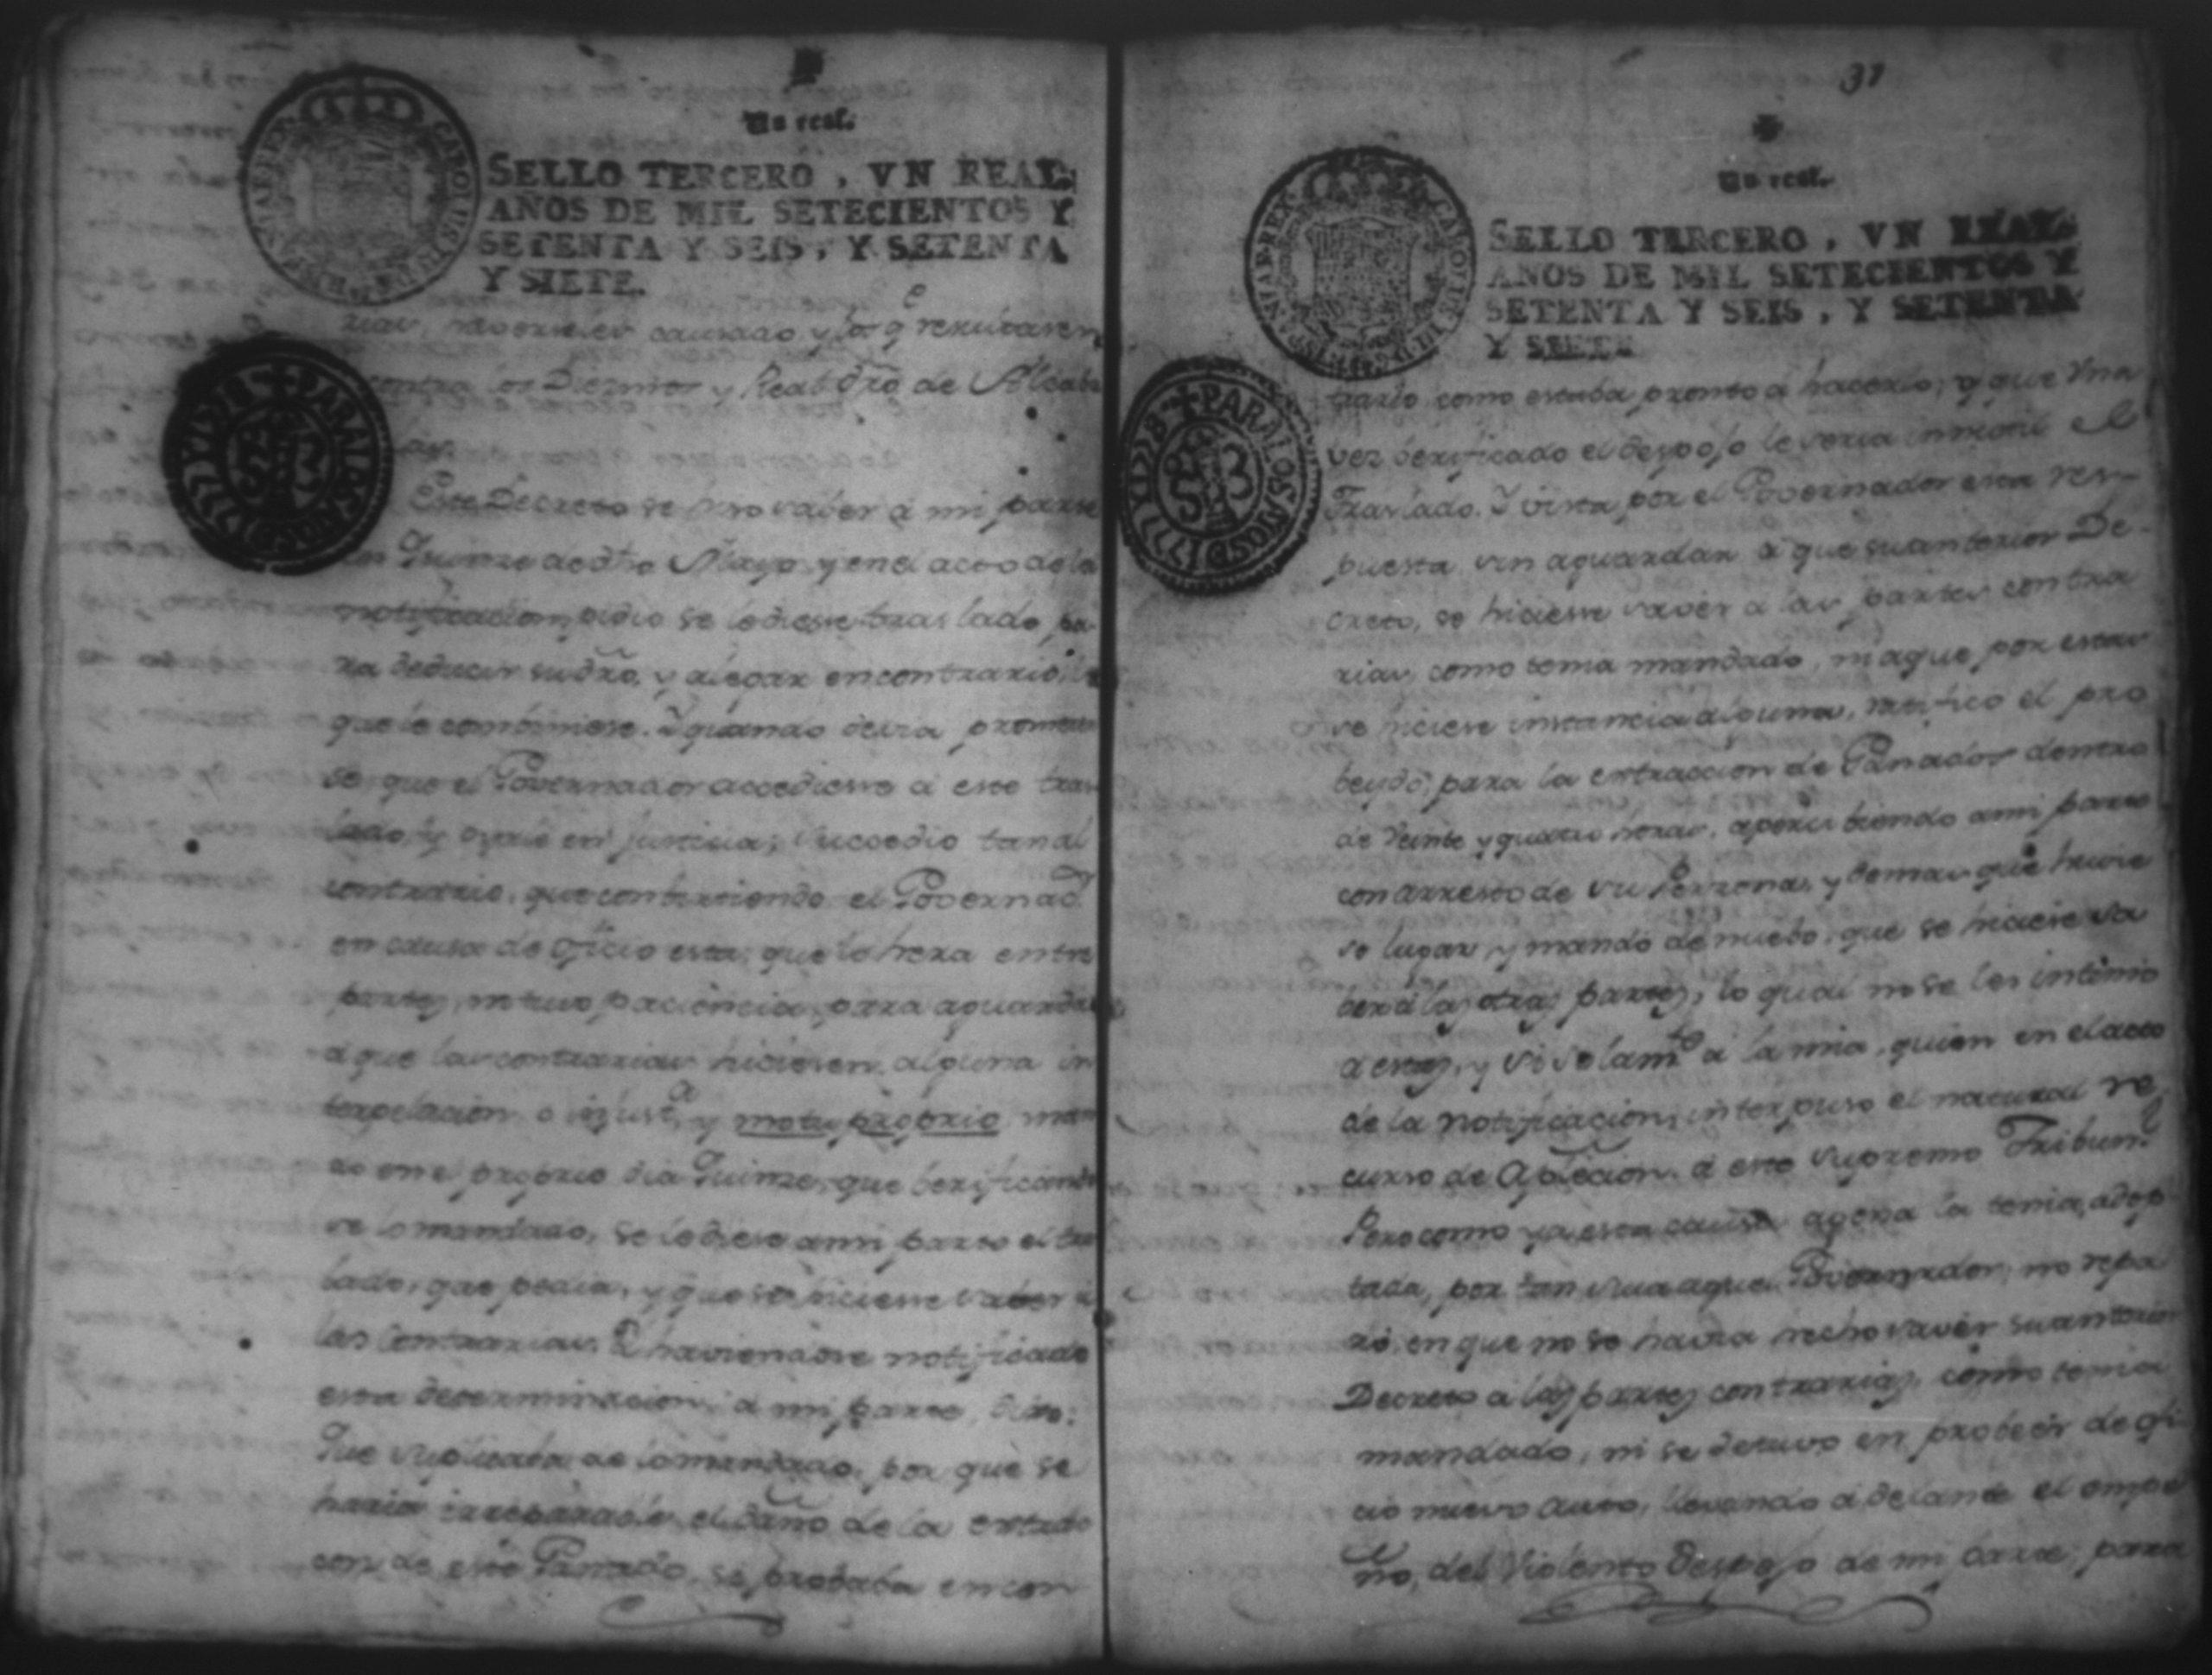 Un real.
SELLO TERCERO, VN REAL:
AÑOS DE MIL SETECIENTOS Y
SETENTA Y SEIS, Y SETENTA
Y SIETE.
causado y los qe resultasen
contra los Diezmos y Real dro de Alcaba
las.
Este Decreto se hizo saver á mi parte
en Quinze de dho Mayo, y en el acto de la
notificacion pidio se le diese traslado pa-
ra deducir su dro, y alegar en contrario lo
que le combiniese. Y quando devia prometer
se que el Governador accediesse á este tras
lado, y oyrle en justicia, succedio tan al
contrario, que combirtiendo el Governador
en causa de oficio esta, que lo hera entre
partes, ni tuvo paciencia para aguardar
á que las contrarias hiciesen alguna in
terpelacion o injusta y motu proprio man
do en el proprio dia Quinze, que berificando
se lo mandado, se le diese a mi parte el tras
lado, que pedia, y que se hiciesse saver á
las Contrarias. Y haviendose notificado
esta determinacion á mi parte, dixo:
Que suplicaba de lo mandado, por que se
haria irreparable el daño de la extrac
con de este Ganado, se probaba en con
37
Un real.
SELLO TERCERO, VN REAL:
AÑOS DE MIL SETECIENTOS Y
SETENTA Y SEIS, Y SETENTA
Y SIETE
trario como estaba pronto á hacerlo; y que Una
ves berificado el despojo le seria inutil el
Traslado. Y vista por el Governador esta res-
puesta sin aguardar á que su anterior De-
creto, se hiciesse saver á las partes contra
rias, como tenia mandado, ni a que por estas
se hiciese instancia alguna, ratifico el pro
beydo, para la extraccion de Ganados dentro
de Veinte y quatro horas, apercibiendo a mi parte
con arresto de su Perzona, y demas que huvie
se lugar, y mandó de nuebo, que se hiciese sa
ver á las otras partes, lo qual no se les intimó
á estas, y si solamte á la mia, quien en el acto
de la notificacion, interpuso el natural re
curso de Aplecion á este supremo Tribunl
Pero como ya esta causa agena la tenia, adop
tada, por tan suia aquel Governador, no repa
ró, en que no se havia hecho saver su anterior
Decreto a las partes contrarias, como tenia
mandado, ni se detuvo en proveer de ofi
cio nuevo auto, llevando á delante el empe
ño, del Violento despojo de mi parte, para